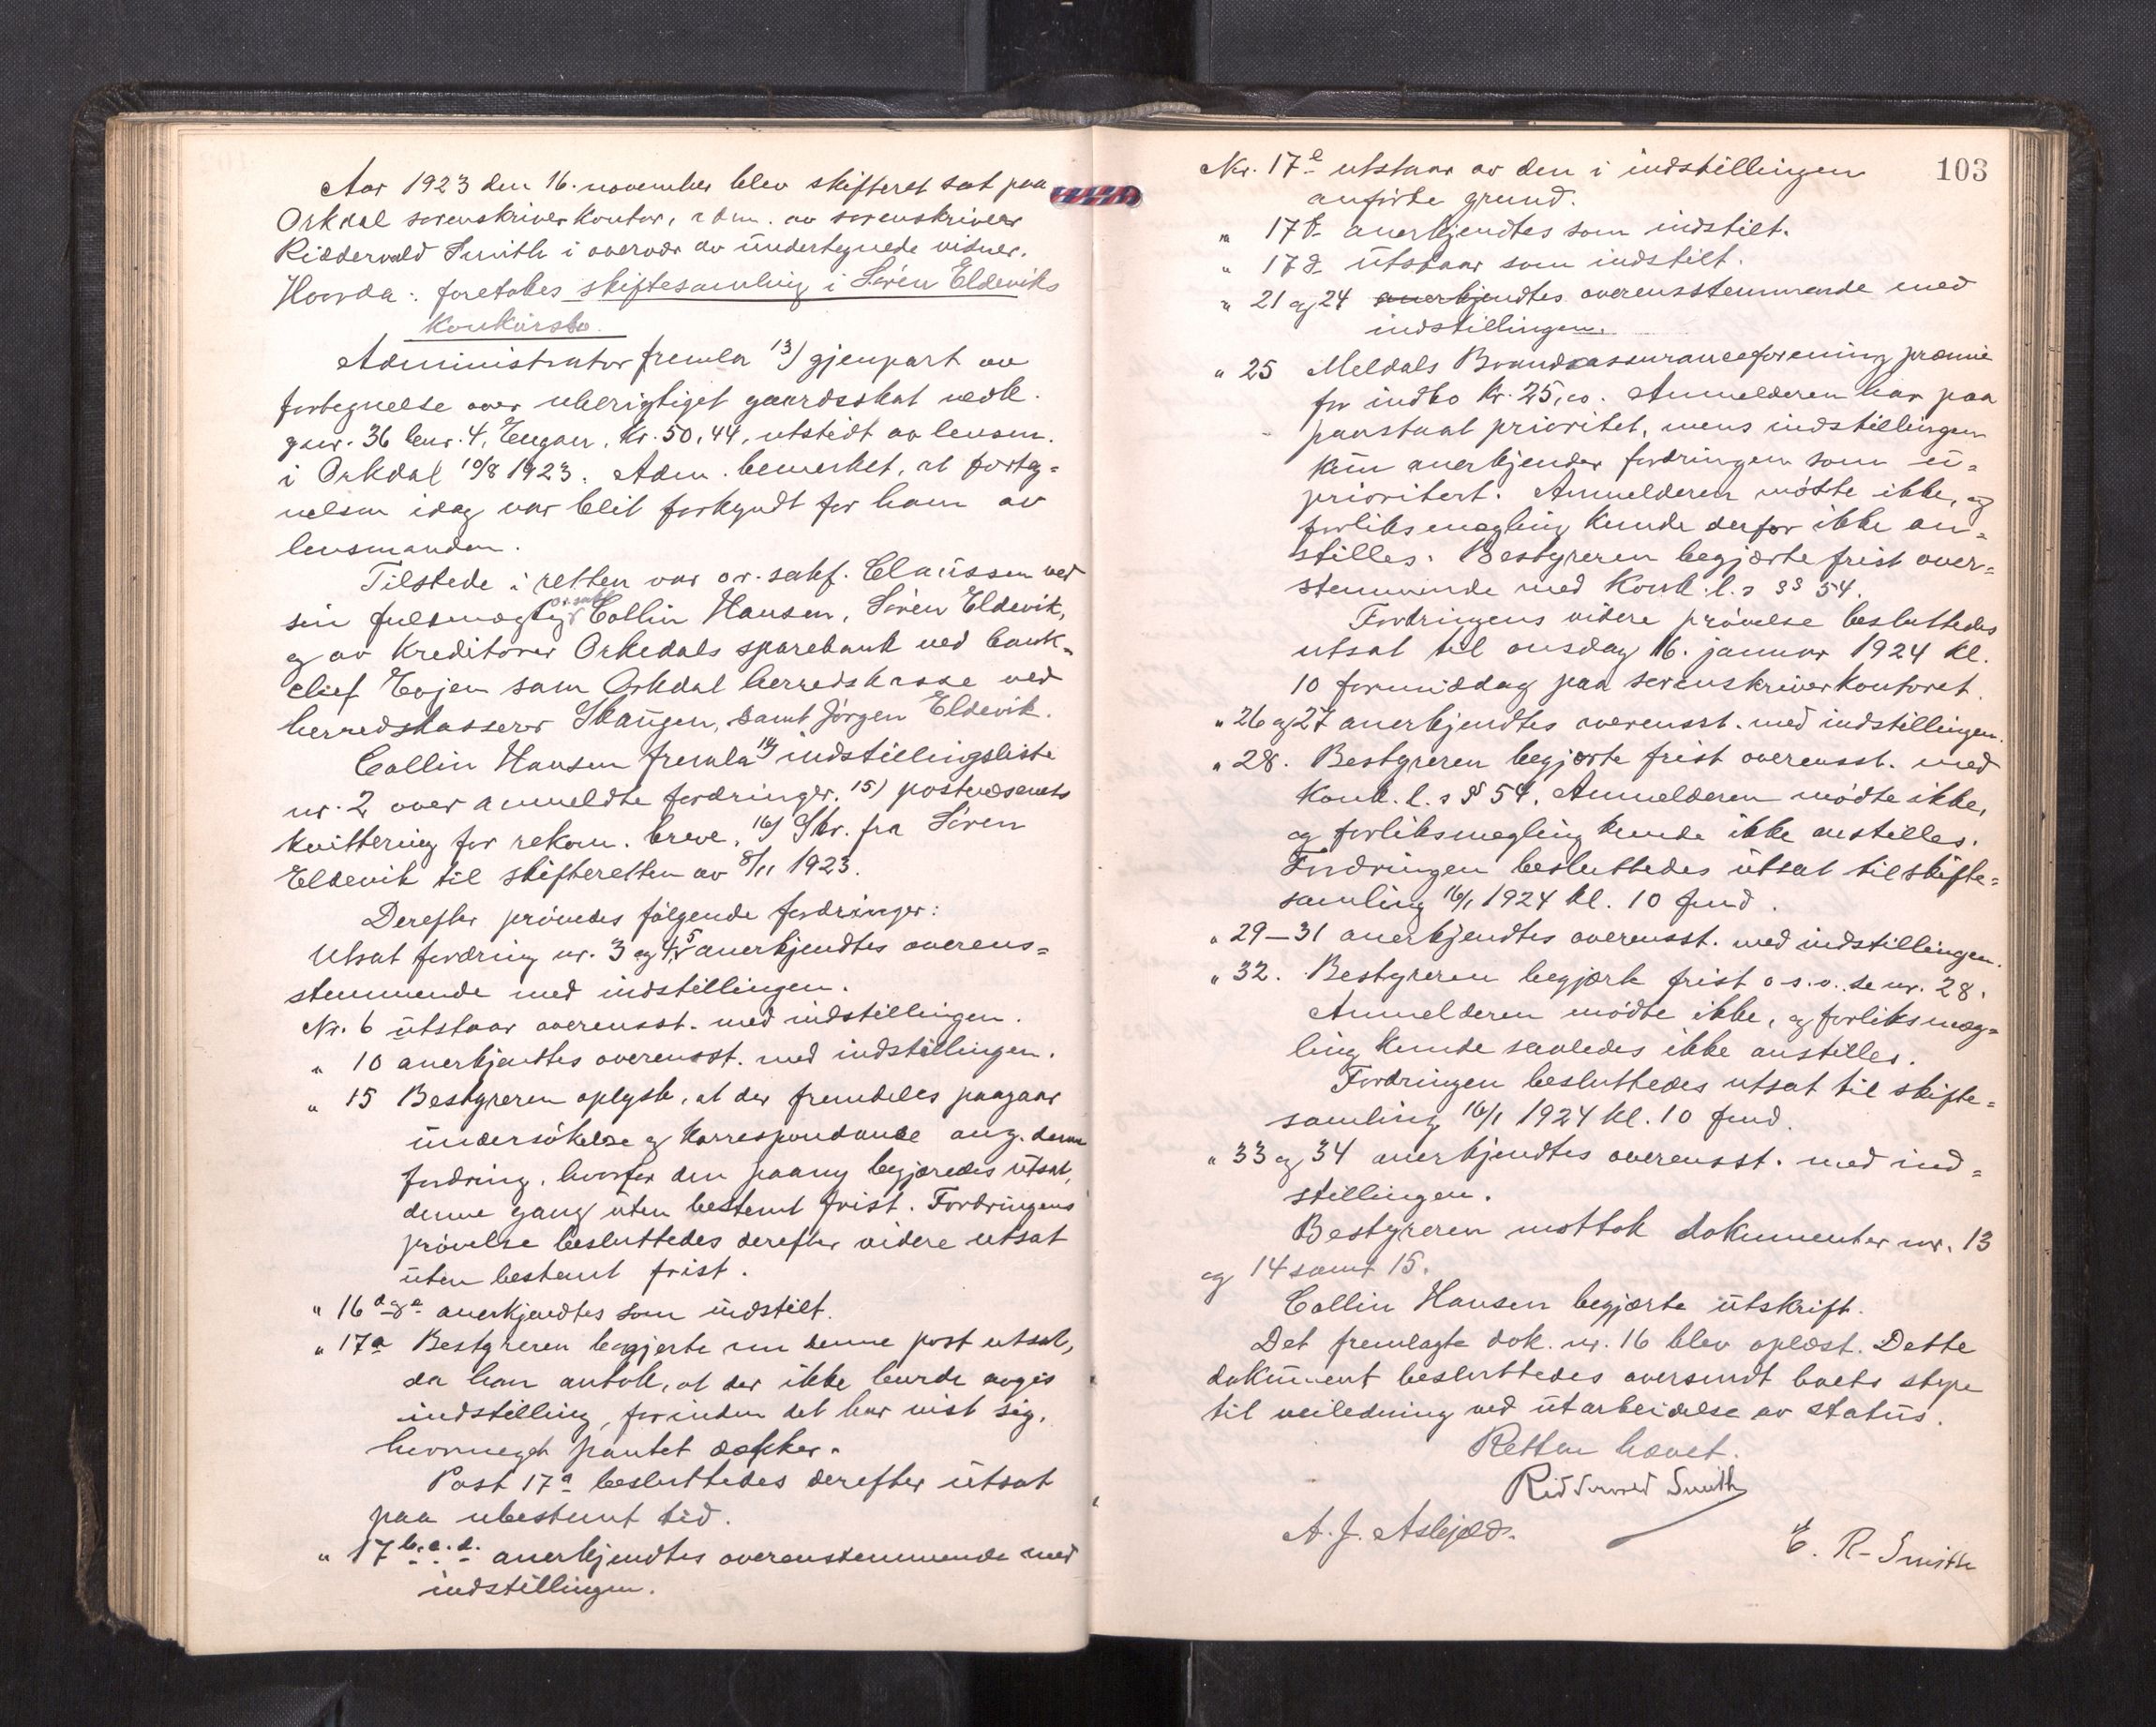 Aar 1923 den 16. november blev skifteret sat paa
Orkdal sorenskriverkontor, adm. av sorenskriver
Riddervold Smith i overvær av undertegnede vidner.
Hvorda: foretokes skiftesamling i Sören Eldeviks
Konkursbo.
Administrator fremla 13) gjenpart av
fortegnelse over uberigtiget gaardsskat vedk.
gnr. 36 bnr. 4, Engan, kr. 50,44, utstedt av lensm.
i Orkdal 10/8 1923. Adm. bemerket, at forteg=
nelsen idag var blit forkyndt for ham av
lensmanden.
Tilstede i retten var o.r. sakf. Claussen ved
sin fuldmægtig o.r.sakf. Collin Hansen, Sören Eldevik,
og av Kreditorer Orkedals sparebank ved bank=
chef Evjen samt Orkdal herredskasse ved
herredskasserer Skaugen, samt Jörgen Eldevik.
Collin Hansen fremla 14) indstillingsliste
nr. 2 over anmeldte fordringer. 15) postvæsenets
kvittering for rekom. breve, 16) Skr. fra Sören
Eldevik til skifteretten av 8/11 1923.
Derefter prövedes fölgende fordringer:
Utsat fordring nr. 3 og 4, 5 anerkjendtes overens=
stemmende med indstillingen.
Nr. 6 utstaar overensst. med indstillingen.
" 10 anerkjendtes overensst. med indstillingen.
" 15 Bestyreren oplyste, at der fremdeles paagaar
undersökelse og korrespondance ang. denne
fordring, hvorfor den paany begjæredes utsat,
denne gang uten bestemt frist. Fordringens
prövelse besluttedes derefter videre utsat
uten bestemt frist.
" 16 d og e anerkjendtes som indstilt.
" 17a Bestyreren begjærte nu denne post utsat,
da han antok, at der ikke burde avgis
indstilling, forinden det har vist sig,
hvormeget pantet dækker.
Post 17a besluttedes derefter utsat
paa ubestemt tid.
" 17 b. c. d. anerkjendtes overensstemmende med
indstillingen.
103
Nr. 17e utstaar av den i indstillingen
anförte grund.
" 17f anerkjendtes som indstilt.
" 17g utstaar som indstilt.
" 21 og 24 anerkjendtes overensstemmende med
indstillingen.
" 25 Meldals Brandassuranceforening præmie
for indbo kr. 25,00. Anmelderen har paa
paastaat prioritet, mens indstillingen
kun anerkjender fordringen som u=
prioritert. Anmelderen mötte ikke, og
forliksmægling kunde derfor ikke an=
stilles. Bestyreren begjærte frist over=
stemmende med Konk.l.s §§ 54.
Fordringens videre prövelse besluttedes
utsat til onsdag 16. januar 1924 kl.
10 formiddag paa sorenskriverkontoret.
" 26 og 27 anerkjendtes overensst. med indstillingen.
" 28. Bestyreren begjærte frist overensst. med
Konk.l.s § 54. Anmelderen mödte ikke,
og forliksmægling kunde ikke anstilles.
Fordringen besluttedes utsat til skifte=
samling 16/1 1924 kl. 10 fmd.
" 29–31 anerkjendtes overensst. med indstillingen.
" 32. Bestyreren begjærte frist o.s.v. se nr. 28.
Anmelderen mödte ikke, og forliksmæg=
ling kunde saaledes ikke anstilles.
Fordringen besluttedes utsat til skifte=
samling 16/1 1924 kl. 10 fmd.
" 33 og 34 anerkjendtes overensst. med ind=
stillingen.
Bestyreren mottok dokumenter nr. 13
og 14 samt 15.
Collin Hansen begjærte utskrift.
Det fremlagte dok. nr. 16 blev oplæst. Dette
dokument besluttedes oversendt boets styre
til veiledning ved utarbeidelse av status.
Retten hævet.
Riddervold Smith
A. J. Asbjøld.
E. R. Smith